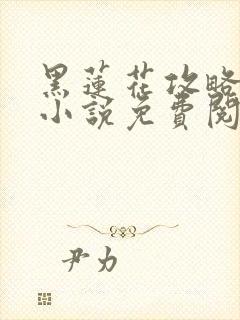 黑蓮花攻略
小説免費閱
尹力